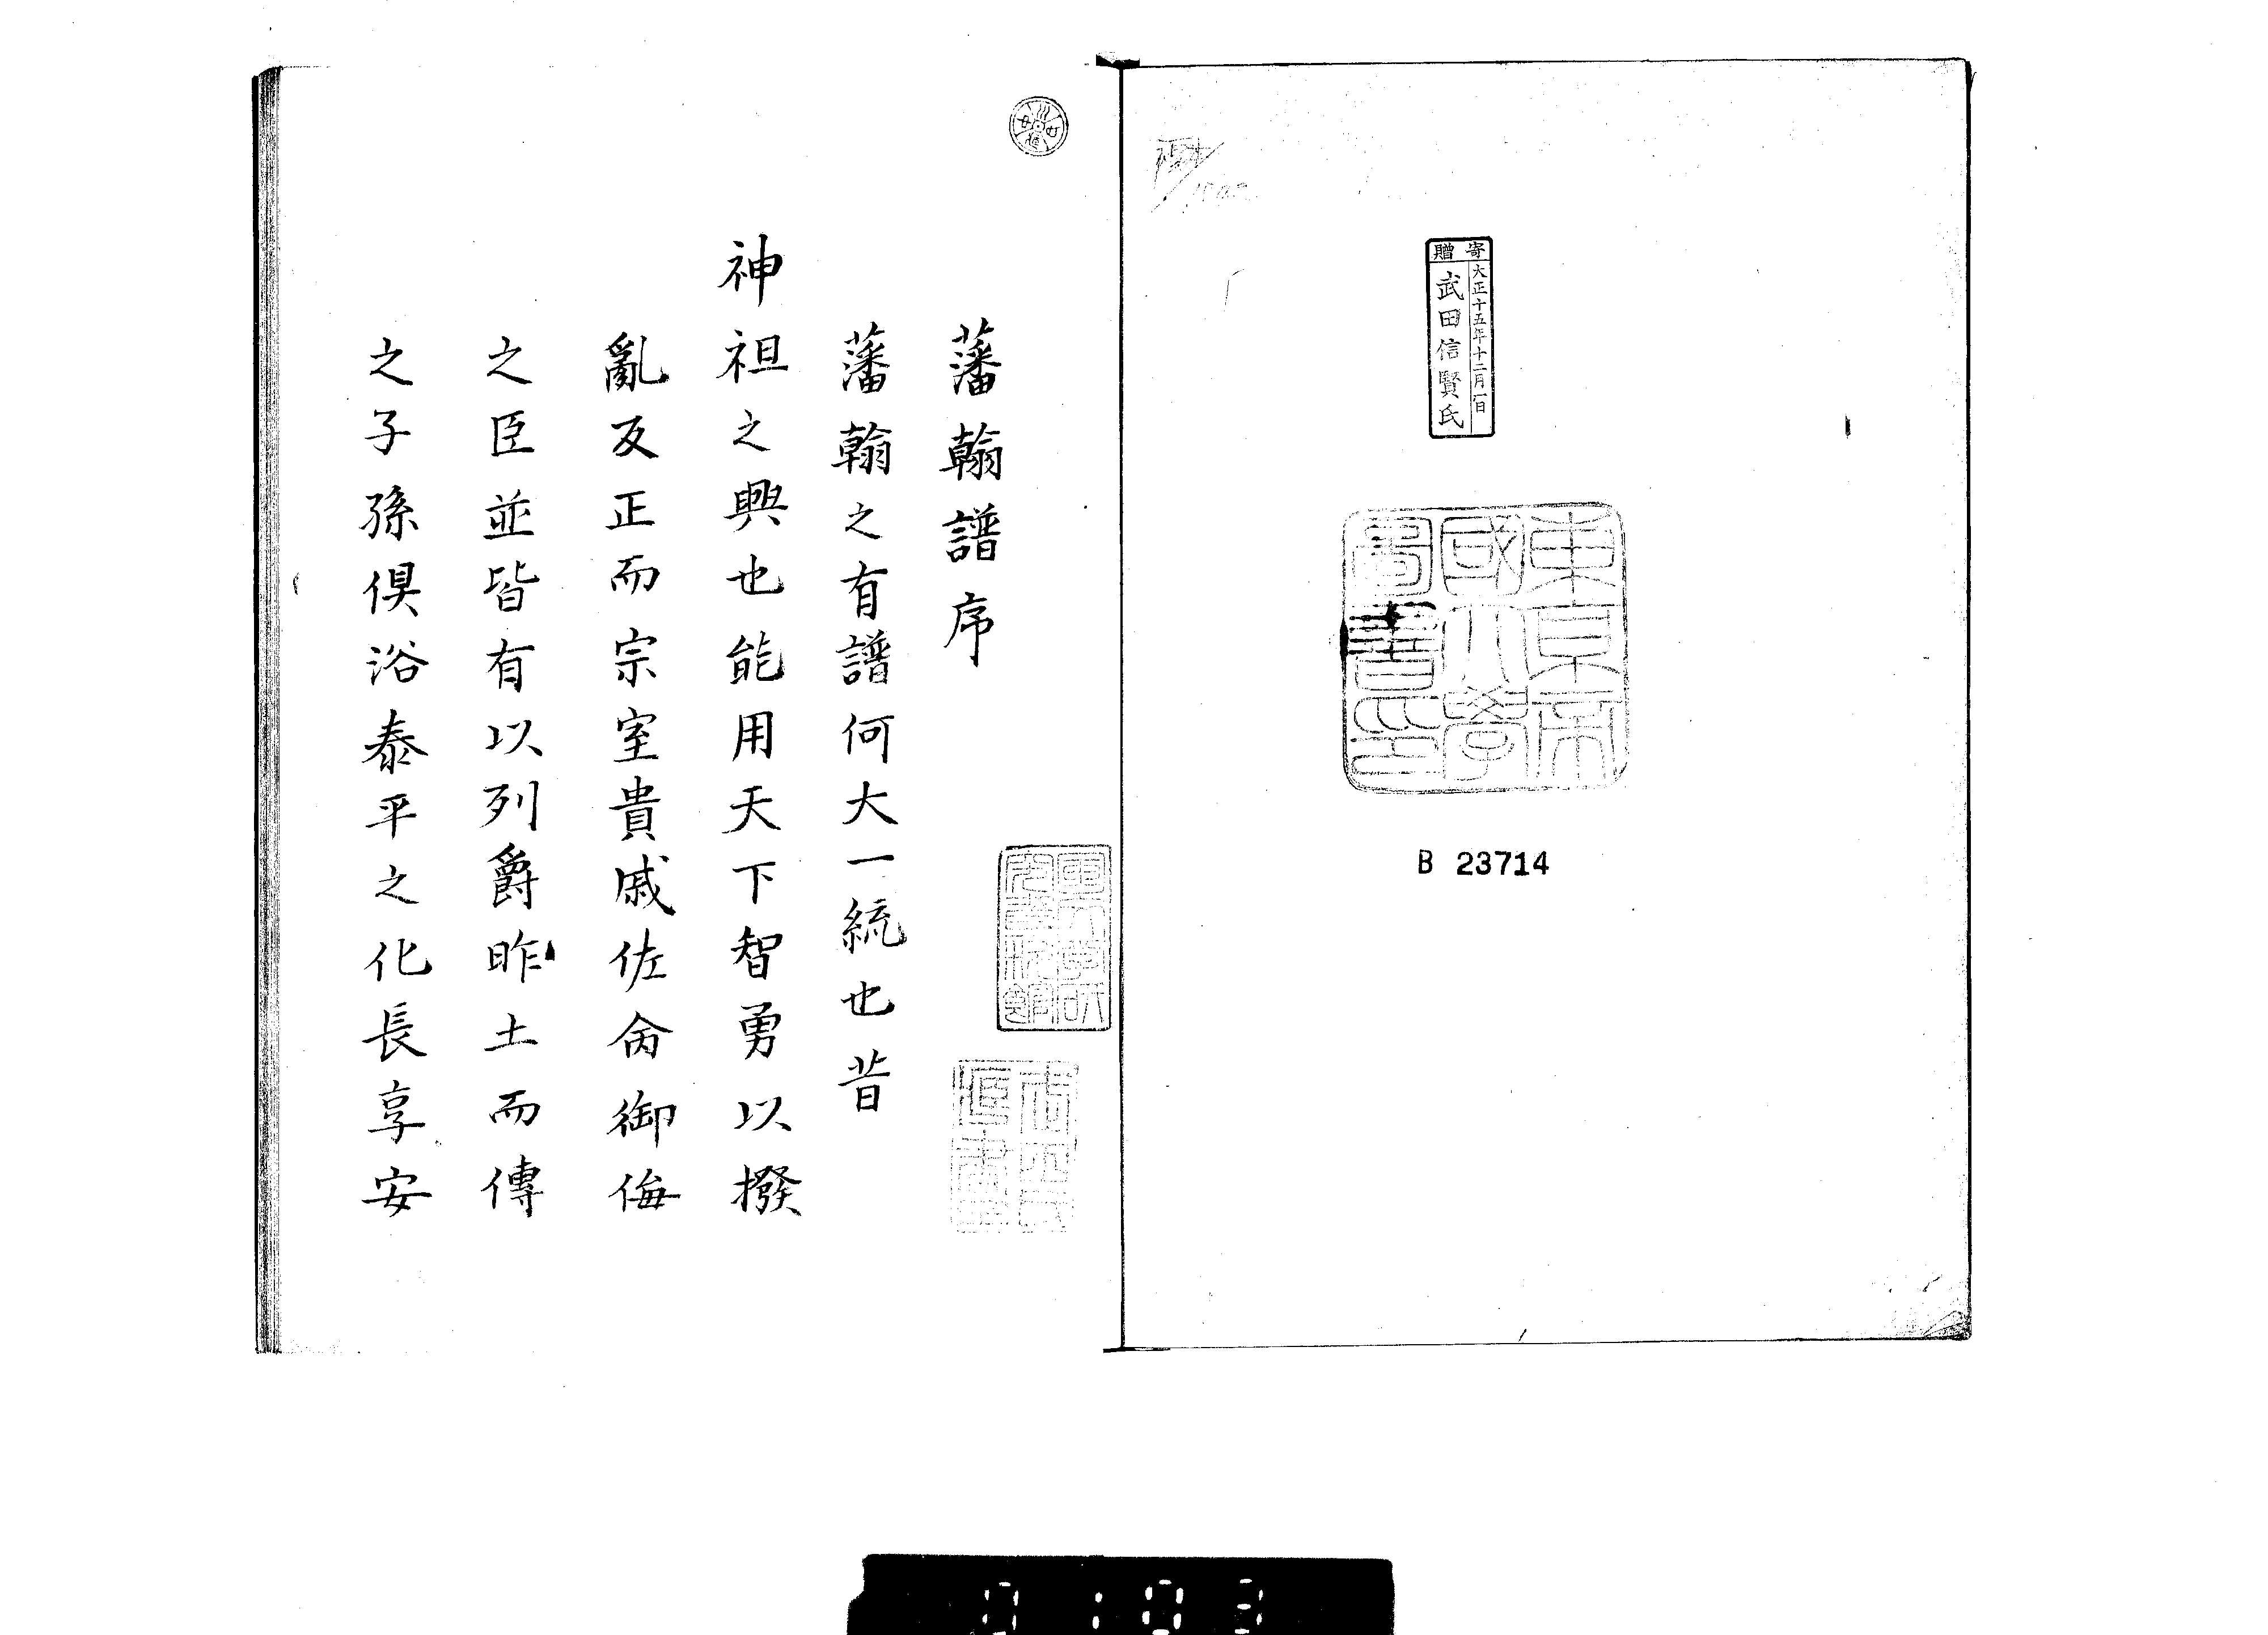 寄贈
大正十五年十二月一日
武田信賢氏
東京帝
國大學
圖書印
B 23714
藩翰譜序
藩翰之有譜何大一統也昔
神祖之興也能用天下智勇以撥
亂反正而宗室貴戚佐命御侮
之臣並皆有以列爵昨土而傳
之子孫俱浴泰平之化長享安